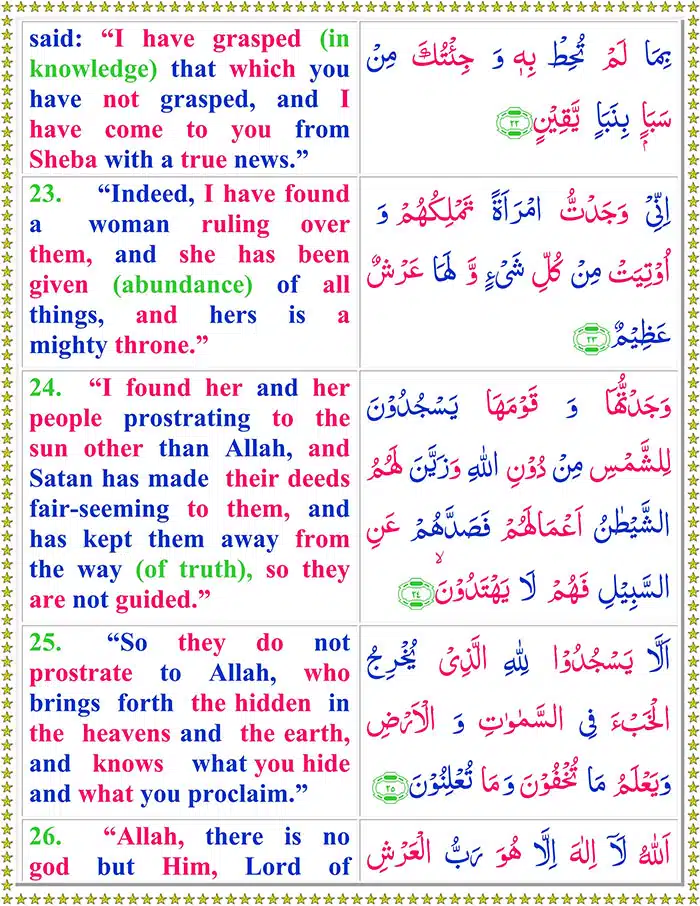 said: “I have grasped (in
knowledge) that which you
have not grasped, and I
have come to you from
Sheba with a true news.”
بِمَا لَمْ تُحِطْ بِهٖ وَ جِئْتُكَ مِنْ
سَبَاٍۭ بِنَبَاٍ یَّقِیْنٍ ﴿۲۲﴾
23. “Indeed, I have found
a woman ruling over
them, and she has been
given (abundance) of all
things, and hers is a
mighty throne.”
اِنِّیْ وَجَدْتُّ امْرَاَةً تَمْلِكُهُمْ وَ
اُوْتِیَتْ مِنْ كُلِّ شَیْءٍ وَّ لَهَا عَرْشٌ
عَظِیْمٌ ﴿۲۳﴾
24. “I found her and her
people prostrating to the
sun other than Allah, and
Satan has made their deeds
fair-seeming to them, and
has kept them away from
the way (of truth), so they
are not guided.”
وَجَدْتُّهَا وَ قَوْمَهَا یَسْجُدُوْنَ
لِلشَّمْسِ مِنْ دُوْنِ اللّٰهِ وَزَیَّنَ لَهُمُ
الشَّیْطٰنُ اَعْمَالَهُمْ فَصَدَّهُمْ عَنِ
السَّبِیْلِ فَهُمْ لَا یَهْتَدُوْنَ ۙ﴿۲۴﴾
25. “So they do not
prostrate to Allah, who
brings forth the hidden in
the heavens and the earth,
and knows what you hide
and what you proclaim.”
اَلَّا یَسْجُدُوْا لِلّٰهِ الَّذِیْ یُخْرِجُ
الْخَبْءَ فِی السَّمٰوٰتِ وَ الْاَرْضِ
وَیَعْلَمُ مَا تُخْفُوْنَ وَمَا تُعْلِنُوْنَ ﴿۲۵﴾
26. “Allah, there is no
god but Him, Lord of
اَللّٰهُ لَاۤ اِلٰهَ اِلَّا هُوَ رَبُّ الْعَرْشِ